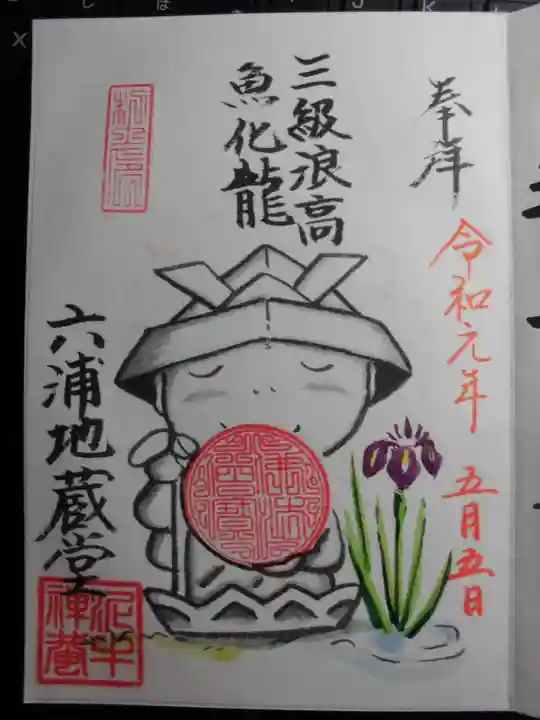 奉拝
令和元年 五月五日
三級浪高
魚化龍
六浦地蔵堂